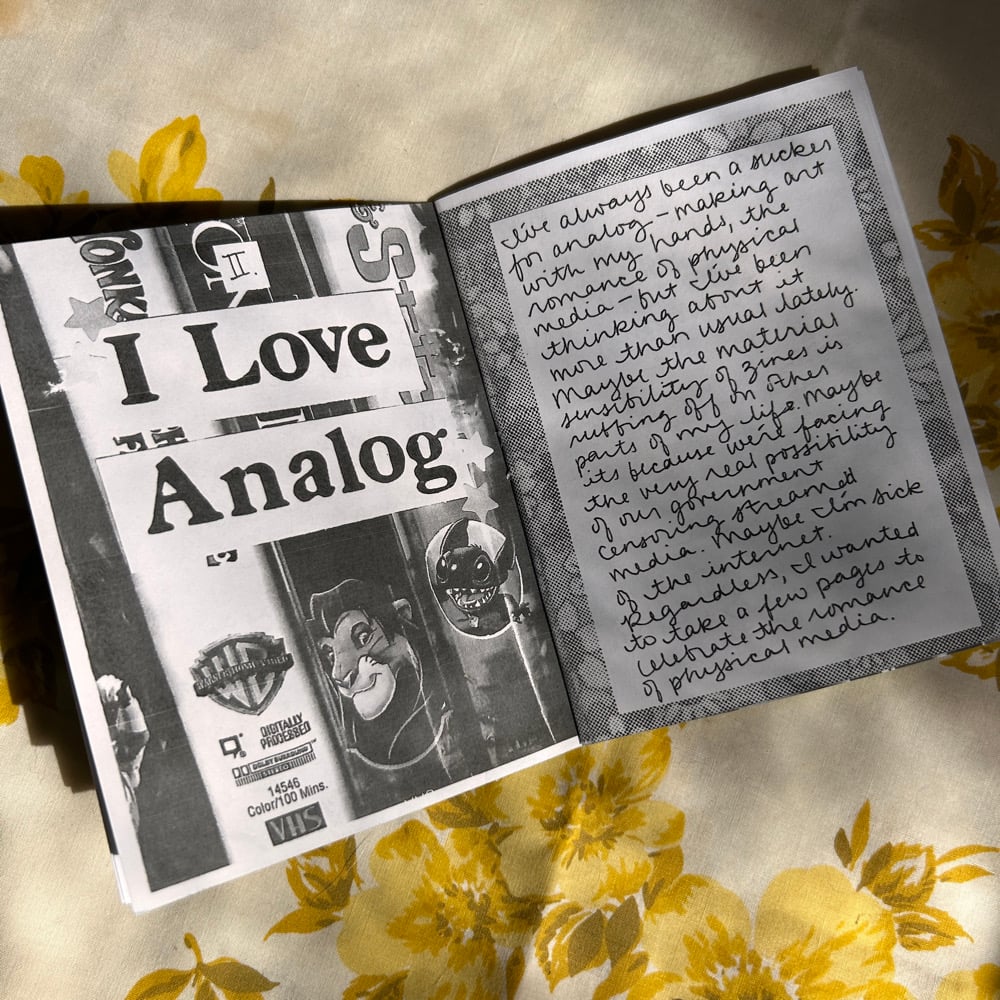 ONK
II
&
S
I Love
Analog
WB
WARNER HOME VIDEO
DIGITALLY
PROCESSED
DOLBY SURROUND
STEREO
14546
Color/100 Mins.
VHS
I've always been a sucker
for analog - making art
with my hands, the
romance of physical
media - but I've been
thinking about it
more than usual lately.
Maybe the material
sensibility of zines is
rubbing off in other
parts of my life. Maybe
its because we're facing
the very real possibility
of our government
censoring streamed
media. Maybe I'm sick
of the internet.
Regardless, I wanted
to take a few pages to
celebrate the romance
of physical media.